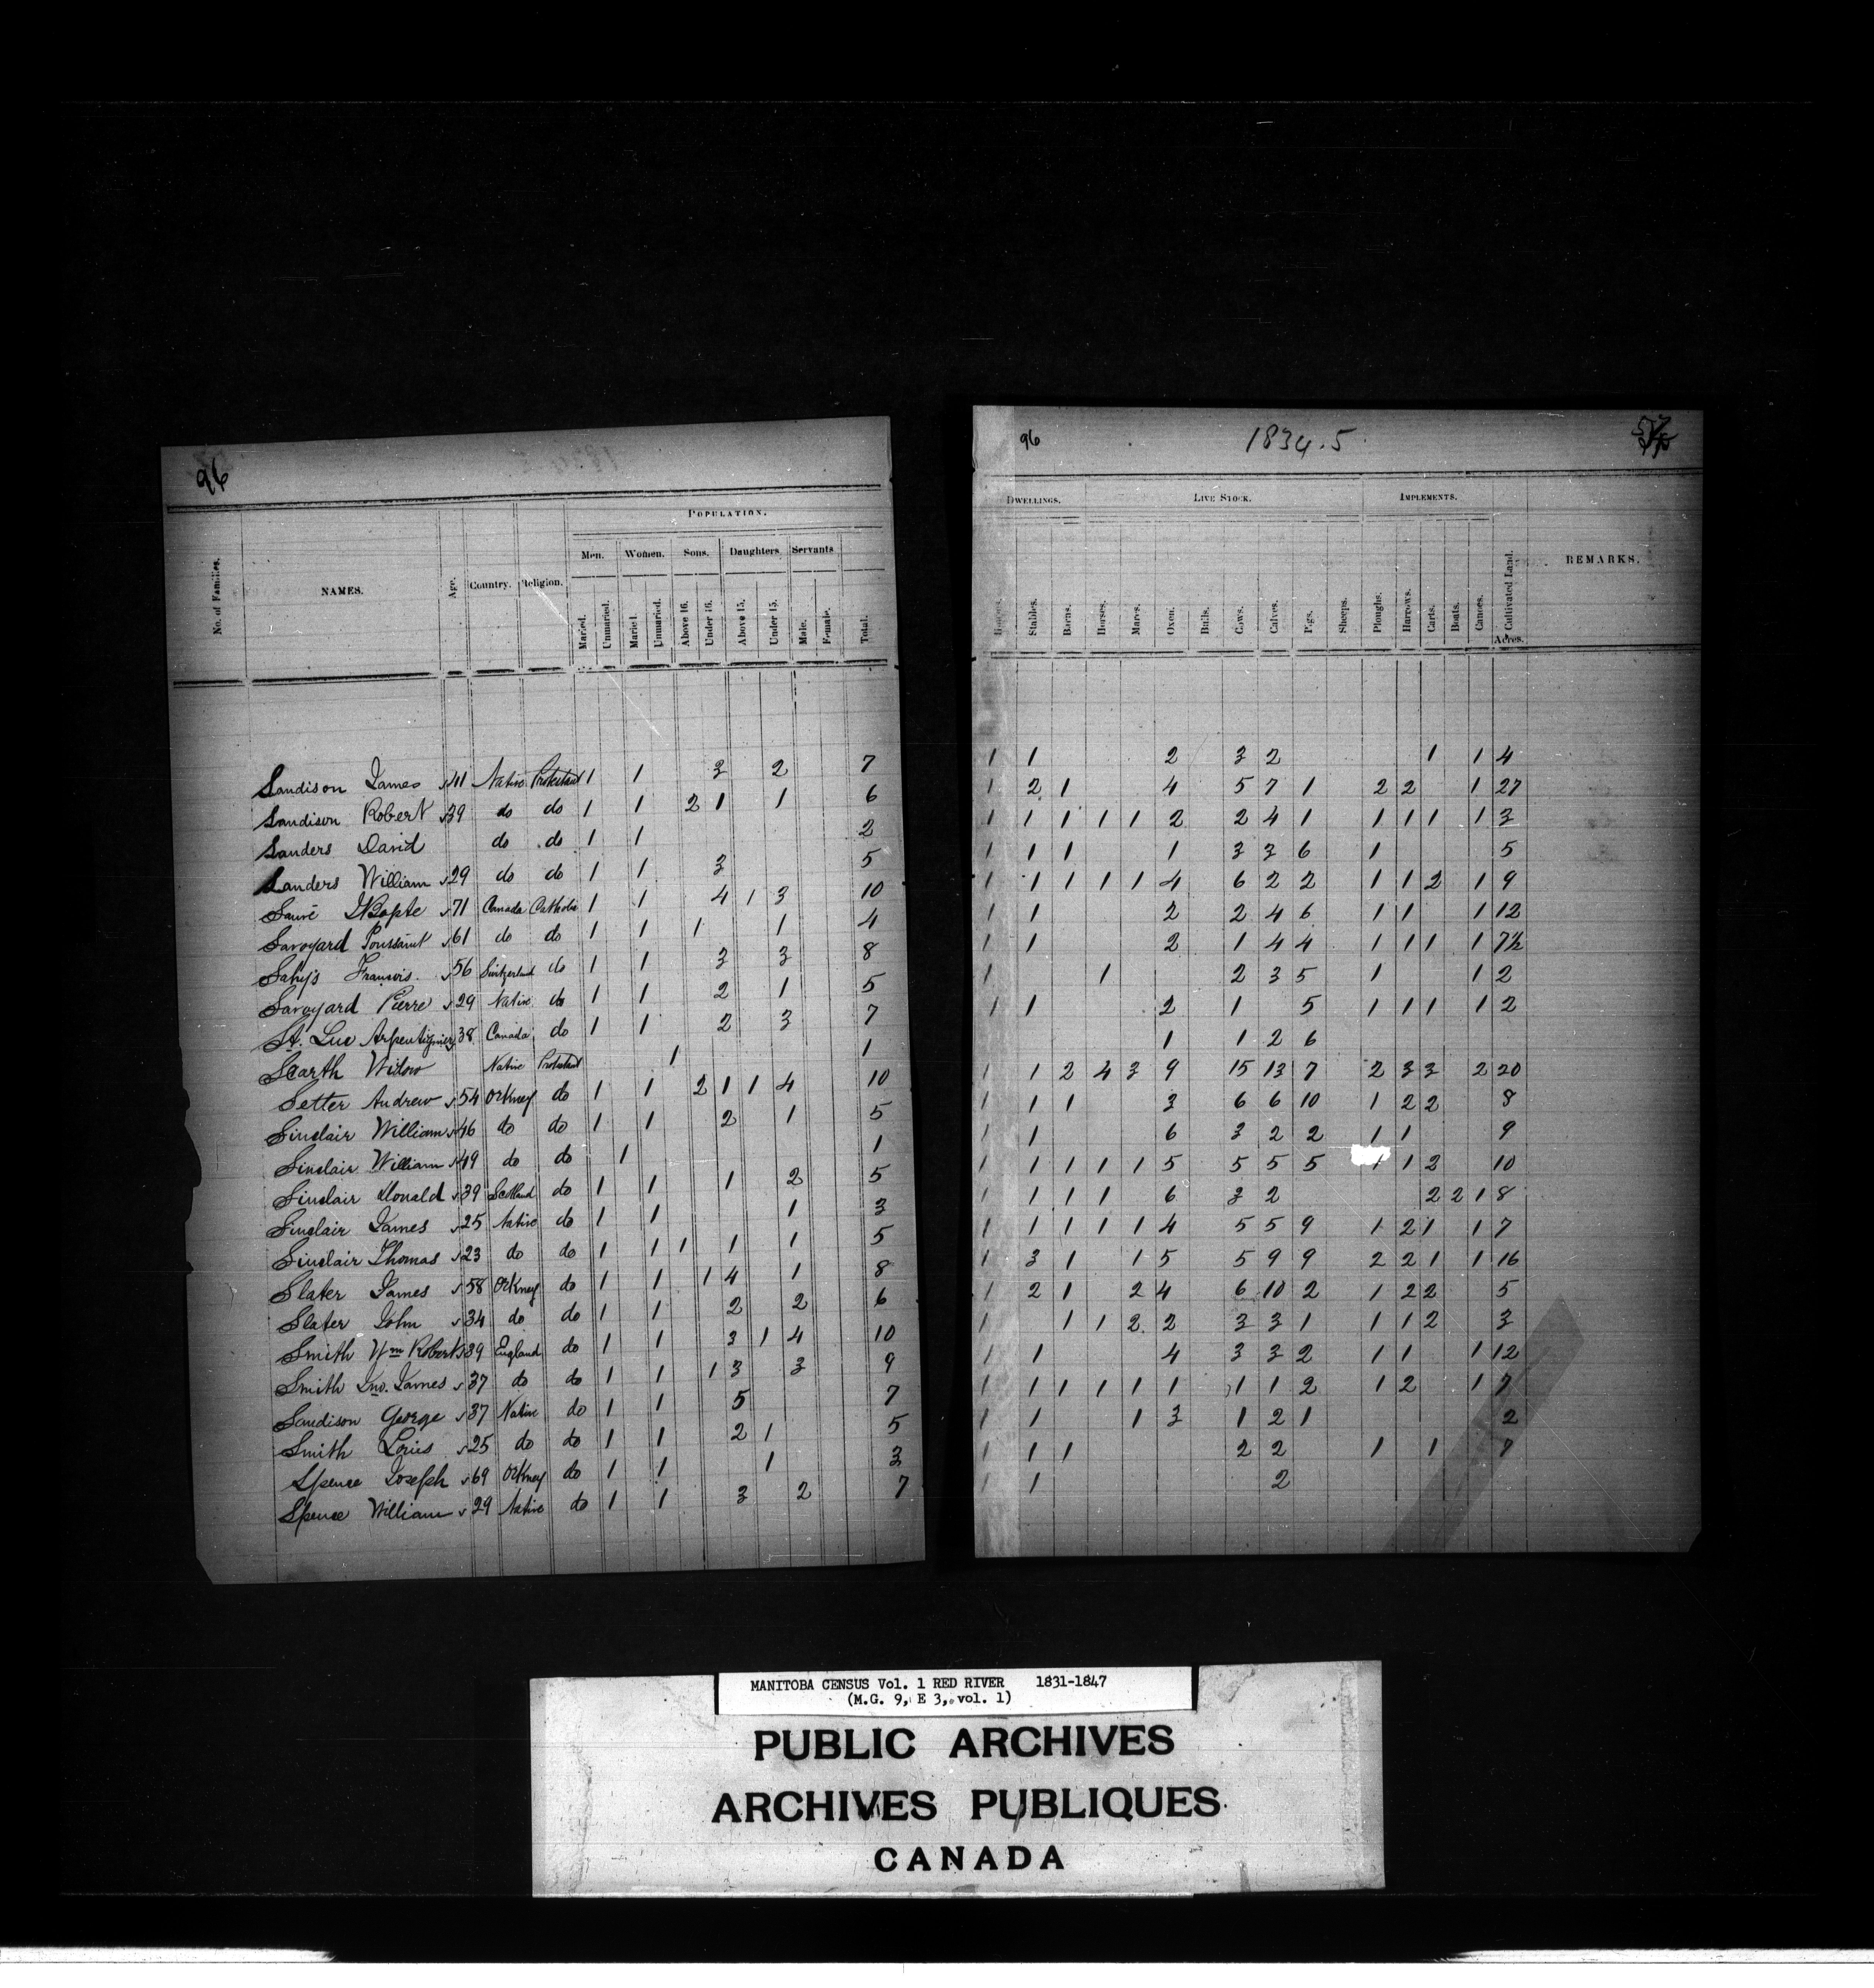 96
POPULATION.
Men. Women. Sons. Daughters. Servants
No. of Families. NAMES. Age. Country. Religion. Married. Unmarried. Married. Unmarried. Above 16. Under 16. Above 15. Under 15. Male. Female. Total.
Sandison James 41 Native Protestant 1 1 3 2 7
Sandison Robert 39 do do 1 1 2 1 1 6
Sanders David do do 1 1 2
Sanders William 29 do do 1 1 3 5
Sauvé JBapte 71 Canada Catholic 1 1 4 1 3 10
Savoyard Toussaint 61 do do 1 1 1 1 4
Francois 56 Switzerland do 1 1 3 3 8
Savoyard Pierre 29 Native do 1 1 2 1 5
St. Luc Arpentignier 38 Canada do 1 1 2 3 7
Scarth Widow Native Protestant 1 1
Setter Andrew 54 Orkney do 1 1 2 1 1 4 10
Sinclair William 46 do do 1 1 2 1 5
Sinclair William 49 do do 1 1
Sinclair Donald 39 Scotland do 1 1 1 2 5
Sinclair James 25 Native do 1 1 1 3
Sinclair Thomas 23 do do 1 1 1 1 1 5
Slater James 58 Orkney do 1 1 1 4 1 8
Slater John 34 do do 1 1 2 2 6
Smith Wm Robert 39 England do 1 1 3 1 4 10
Smith Jno. James 37 do do 1 1 1 3 3 9
Sandison George 37 Native do 1 1 5 7
Smith Louis 25 do do 1 1 2 1 5
Spence Joseph 69 Orkney do 1 1 1 3
Spence William 29 Native do 1 1 3 2 7
96 1834.5
DWELLINGS. LIVE STOCK. IMPLEMENTS.
Houses. Stables. Barns. Horses. Mares. Oxen. Bulls. Cows. Calves. Pigs. Sheeps. Ploughs. Harrows. Carts. Boats. Canoes. Cultivated Land. REMARKS.
Acres.
1 1 2 3 2 1 1 4
1 2 1 4 5 7 1 2 2 1 27
1 1 1 1 1 2 2 4 1 1 1 1 1 3
1 1 1 1 3 3 6 1 5
1 1 1 1 1 4 6 2 2 1 1 2 1 9
1 1 2 2 4 6 1 1 1 12
1 1 2 1 4 4 1 1 1 1 7½
1 1 2 3 5 1 1 2
1 1 2 1 5 1 1 1 1 2
1 1 2 6
1 1 2 4 3 9 15 13 7 2 3 3 2 20
1 1 1 3 6 6 10 1 2 2 8
1 1 6 3 2 2 1 1 9
1 1 1 1 1 5 5 5 5 1 1 2 10
1 1 1 1 6 3 2 2 2 1 8
1 1 1 1 1 4 5 5 9 1 2 1 1 7
1 3 1 1 5 5 9 9 2 2 1 1 16
1 2 1 2 4 6 10 2 1 2 2 5
1 1 1 2 2 3 3 1 1 1 2 3
1 1 4 3 3 2 1 1 1 12
1 1 1 1 1 1 1 1 2 1 2 1 7
1 1 1 3 1 2 1 2
1 1 1 2 2 1 1 7
1 1 2
MANITOBA CENSUS Vol. 1 RED RIVER 1831-1847
(M.G. 9, E 3, vol. 1)
PUBLIC ARCHIVES
ARCHIVES PUBLIQUES
CANADA